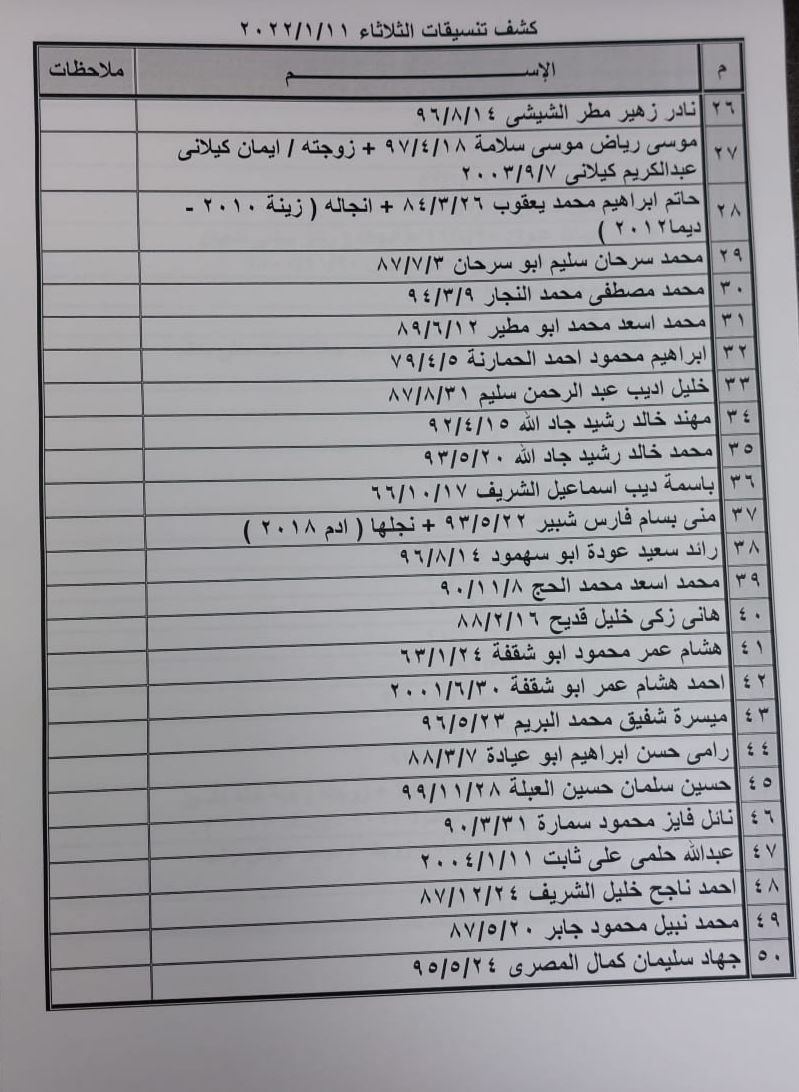 كشف تنسيقات الثلاثاء ٢٠٢٢/١/١١
م الإســـــــــــــــم ملاحظات
٢٦ نادر زهير مطر الشيشى ٩٦/٨/١٤
٢٧ موسى رياض موسى سلامة ٩٧/٤/١٨ + زوجته / ايمان كيلانى
عبدالكريم كيلانى ٢٠٠٣/٩/٧
٢٨ حاتم ابراهيم محمد يعقوب ٨٤/٣/٢٦ + انجاله ( زينة ٢٠١٠ -
ديما٢٠١٢ )
٢٩ محمد سرحان سليم ابو سرحان ٨٧/٧/٣
٣٠ محمد مصطفى محمد النجار ٩٤/٣/٩
٣١ محمد اسعد محمد ابو مطير ٨٩/٦/١٢
٣٢ ابراهيم محمود احمد الحمارنة ٧٩/٤/٥
٣٣ خليل اديب عبد الرحمن سليم ٨٧/٨/٣١
٣٤ مهند خالد رشيد جاد الله ٩٢/٤/١٥
٣٥ محمد خالد رشيد جاد الله ٩٣/٥/٢٠
٣٦ باسمة ديب اسماعيل الشريف ٦٦/١٠/١٧
٣٧ منى بسام فارس شبير ٩٣/٥/٢٢ + نجلها ( ادم ٢٠١٨ )
٣٨ رائد سعيد عودة ابو سهمود ٩٦/٨/١٤
٣٩ محمد اسعد محمد الحج ٩٠/١١/٨
٤٠ هانى زكى خليل قديح ٨٨/٢/١٦
٤١ هشام عمر محمود ابو شقفة ٦٣/١/٢٤
٤٢ احمد هشام عمر ابو شقفة ٢٠٠١/٦/٣٠
٤٣ ميسرة شفيق محمد البريم ٩٦/٥/٢٣
٤٤ رامى حسن ابراهيم ابو عيادة ٨٨/٣/٧
٤٥ حسين سلمان حسين العبلة ٩٩/١١/٢٨
٤٦ نائل فايز محمود سمارة ٩٠/٣/٣١
٤٧ عبدالله حلمى على ثابت ٢٠٠٤/١/١١
٤٨ احمد ناجح خليل الشريف ٨٧/١٢/٢٤
٤٩ محمد نبيل محمود جابر ٨٧/٥/٢٠
٥٠ جهاد سليمان كمال المصرى ٩٥/٥/٢٤